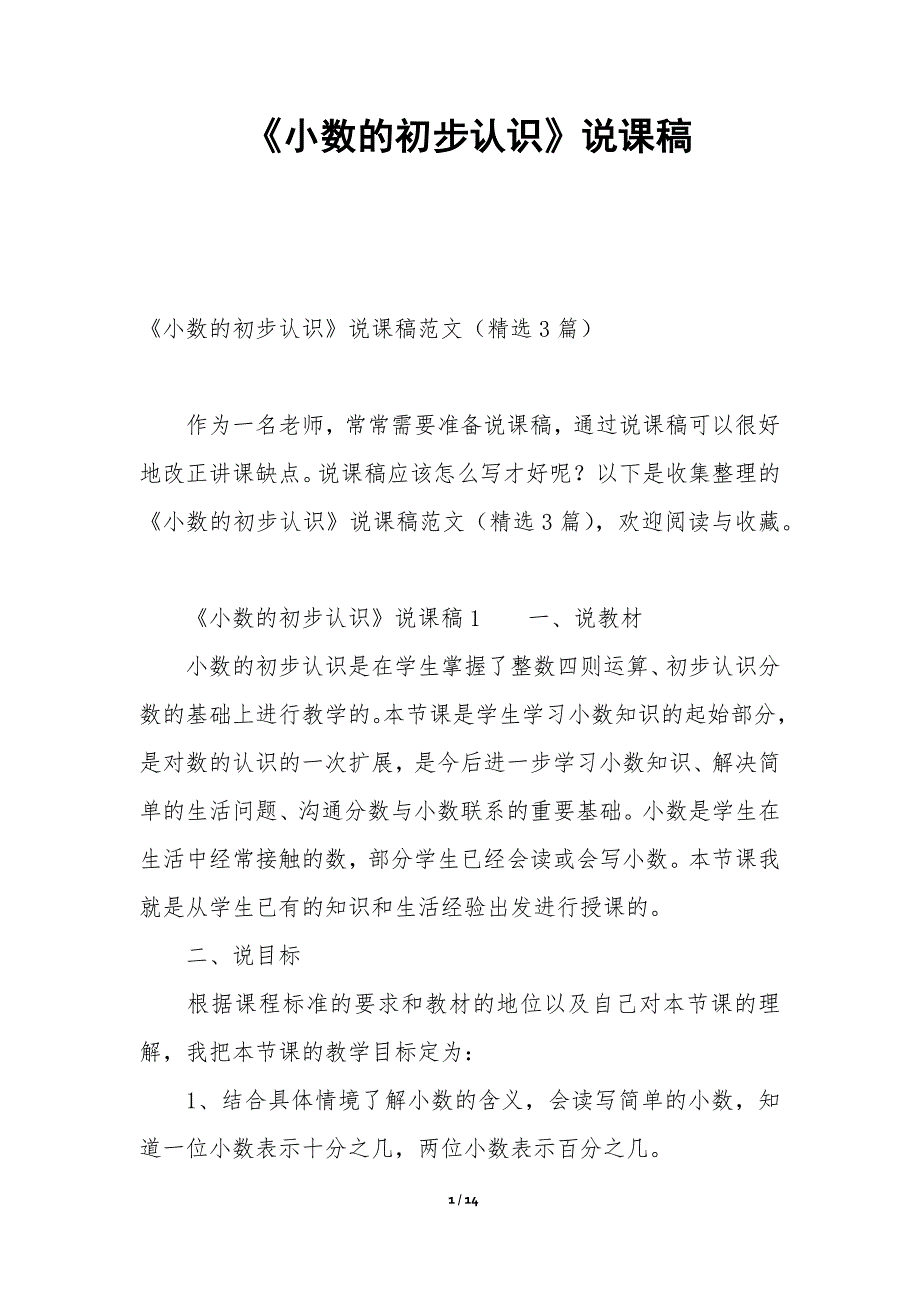 《小数的初步认识》说课稿
《小数的初步认识》说课稿范文（精选3篇）
作为一名老师，常常需要准备说课稿，通过说课稿可以很好
地改正讲课缺点。说课稿应该怎么写才好呢？以下是收集整理的
《小数的初步认识》说课稿范文（精选3篇），欢迎阅读与收藏。
《小数的初步认识》说课稿1　　一、说教材
小数的初步认识是在学生掌握了整数四则运算、初步认识分
数的基础上进行教学的。本节课是学生学习小数知识的起始部分，
是对数的认识的一次扩展，是今后进一步学习小数知识、解决简
单的生活问题、沟通分数与小数联系的重要基础。小数是学生在
生活中经常接触的数，部分学生已经会读或会写小数。本节课我
就是从学生已有的知识和生活经验出发进行授课的。
二、说目标
根据课程标准的要求和教材的地位以及自己对本节课的理
解，我把本节课的教学目标定为：
1、结合具体情境了解小数的含义，会读写简单的小数，知
道一位小数表示十分之几，两位小数表示百分之几。
1 / 14